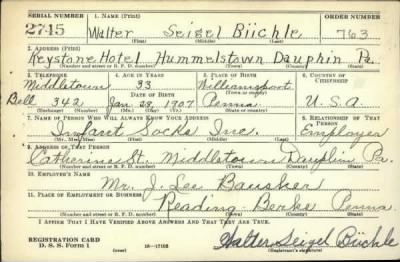 SERIAL NUMBER 1. NAME (Print) ORDER NUMBER
2745 Walter Seigel Büchle 763
(First) (Middle) (Last)
2. ADDRESS (Print)
Keystone Hotel Hummelstown Dauphin Pa.
(Number and street or R. F. D. number) (Town) (County) (State)
3. TELEPHONE 4. AGE IN YEARS 5. PLACE OF BIRTH 6. COUNTRY OF CITIZENSHIP
Middletown 33 Williamsport
(Exchange) DATE OF BIRTH (Town or county)
Bell 342 Jan 28, 1907 Penna. U.S.A.
(Number) (Mo.) (Day) (Yr.) (State or country)
7. NAME OF PERSON WHO WILL ALWAYS KNOW YOUR ADDRESS 8. RELATIONSHIP OF THAT PERSON
Infant Socks Inc. Employer
(Mr., Mrs., Miss) (First) (Middle) (Last)
9. ADDRESS OF THAT PERSON
Catherine St. Middletown Dauphin Pa.
(Number and street or R. F. D. number) (Town) (County) (State)
10. EMPLOYER'S NAME
Mr. J. Lee Bausher
11. PLACE OF EMPLOYMENT OR BUSINESS
Reading Berks Penna.
(Number and street or R. F. D. number) (Town) (County) (State)
I AFFIRM THAT I HAVE VERIFIED ABOVE ANSWERS AND THAT THEY ARE TRUE.
REGISTRATION CARD
D. S. S. Form 1 (over) 16—17105 Walter Seigel Büchle
(Registrant's signature)